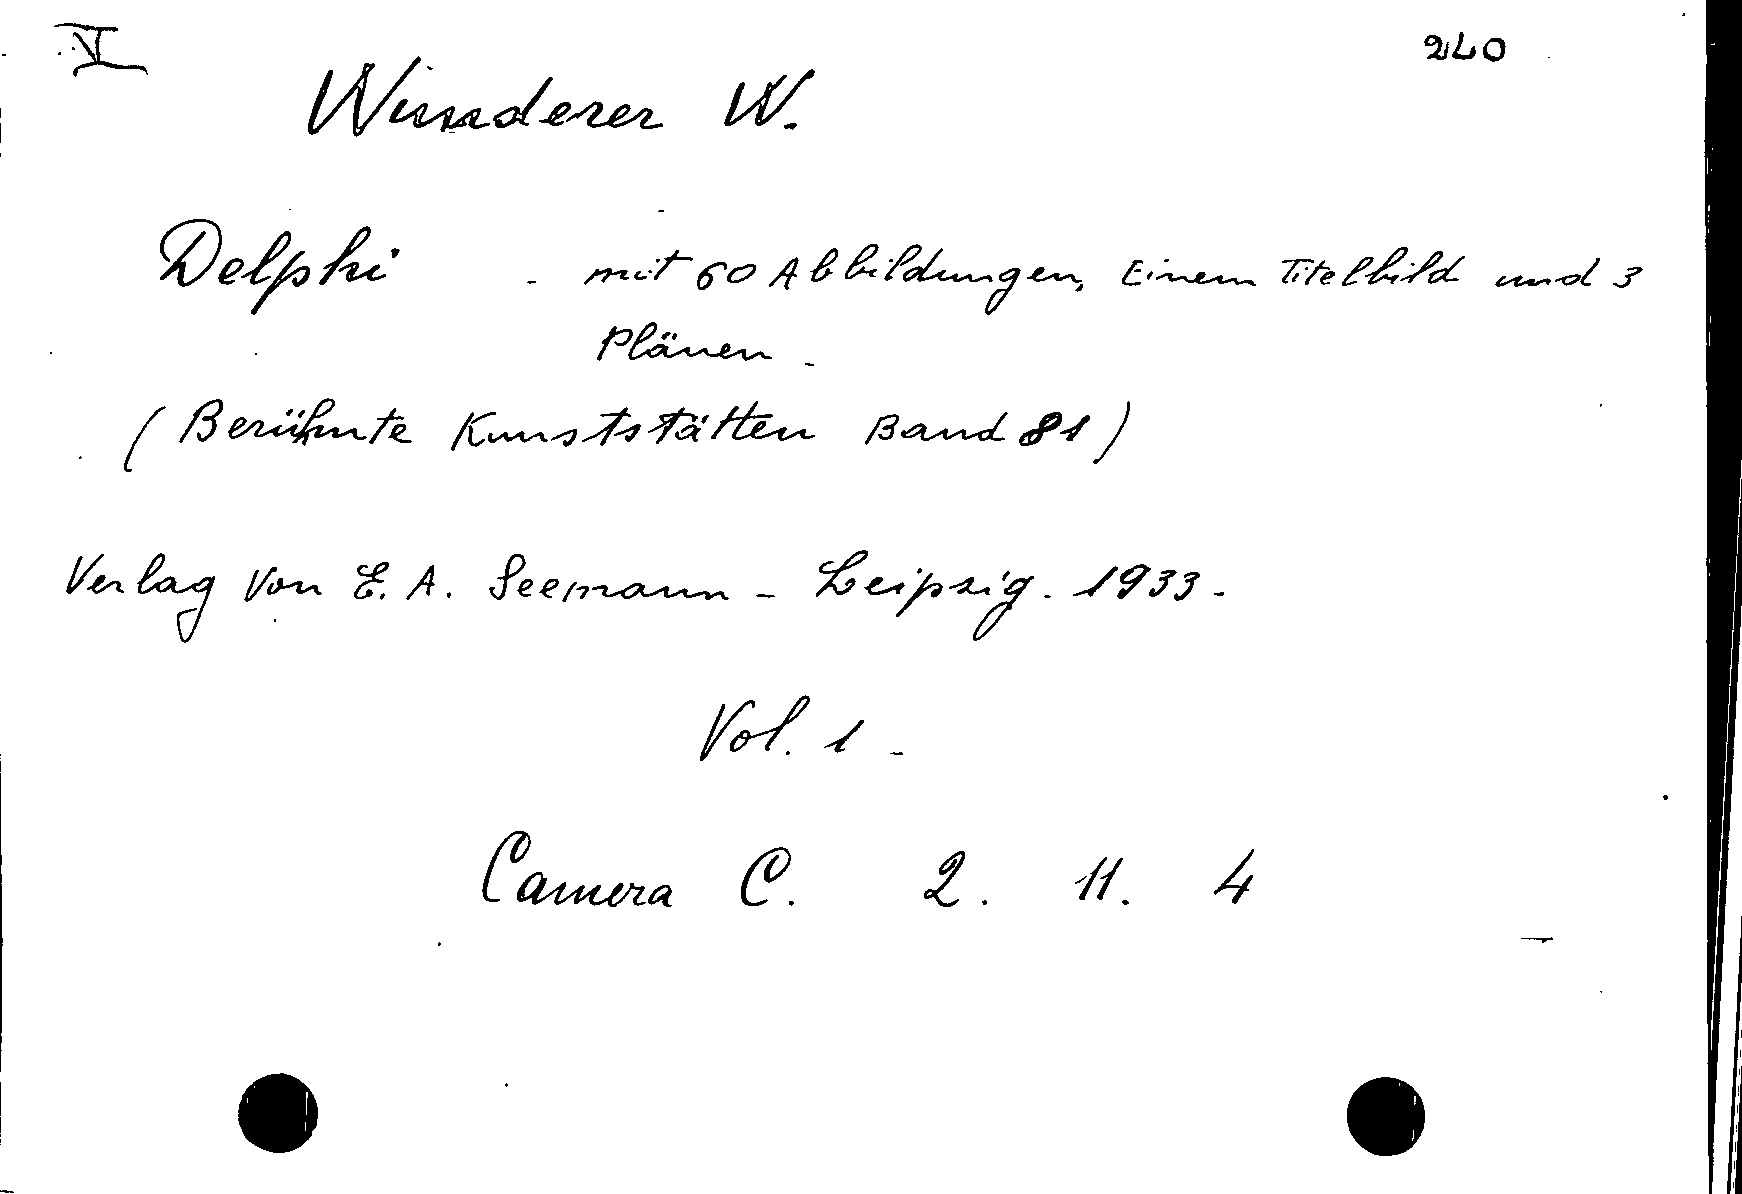 VI
240
Wunderer W.
Delphi - mit 60 Abbildungen, Einem Titelbild und 3
Plänen -
(Berühmte Kunststätten Band 81)
Verlag von E. A. Seemann - Leipzig. 1933.
Vol. 1 -
Camera C. 2. 11. 4